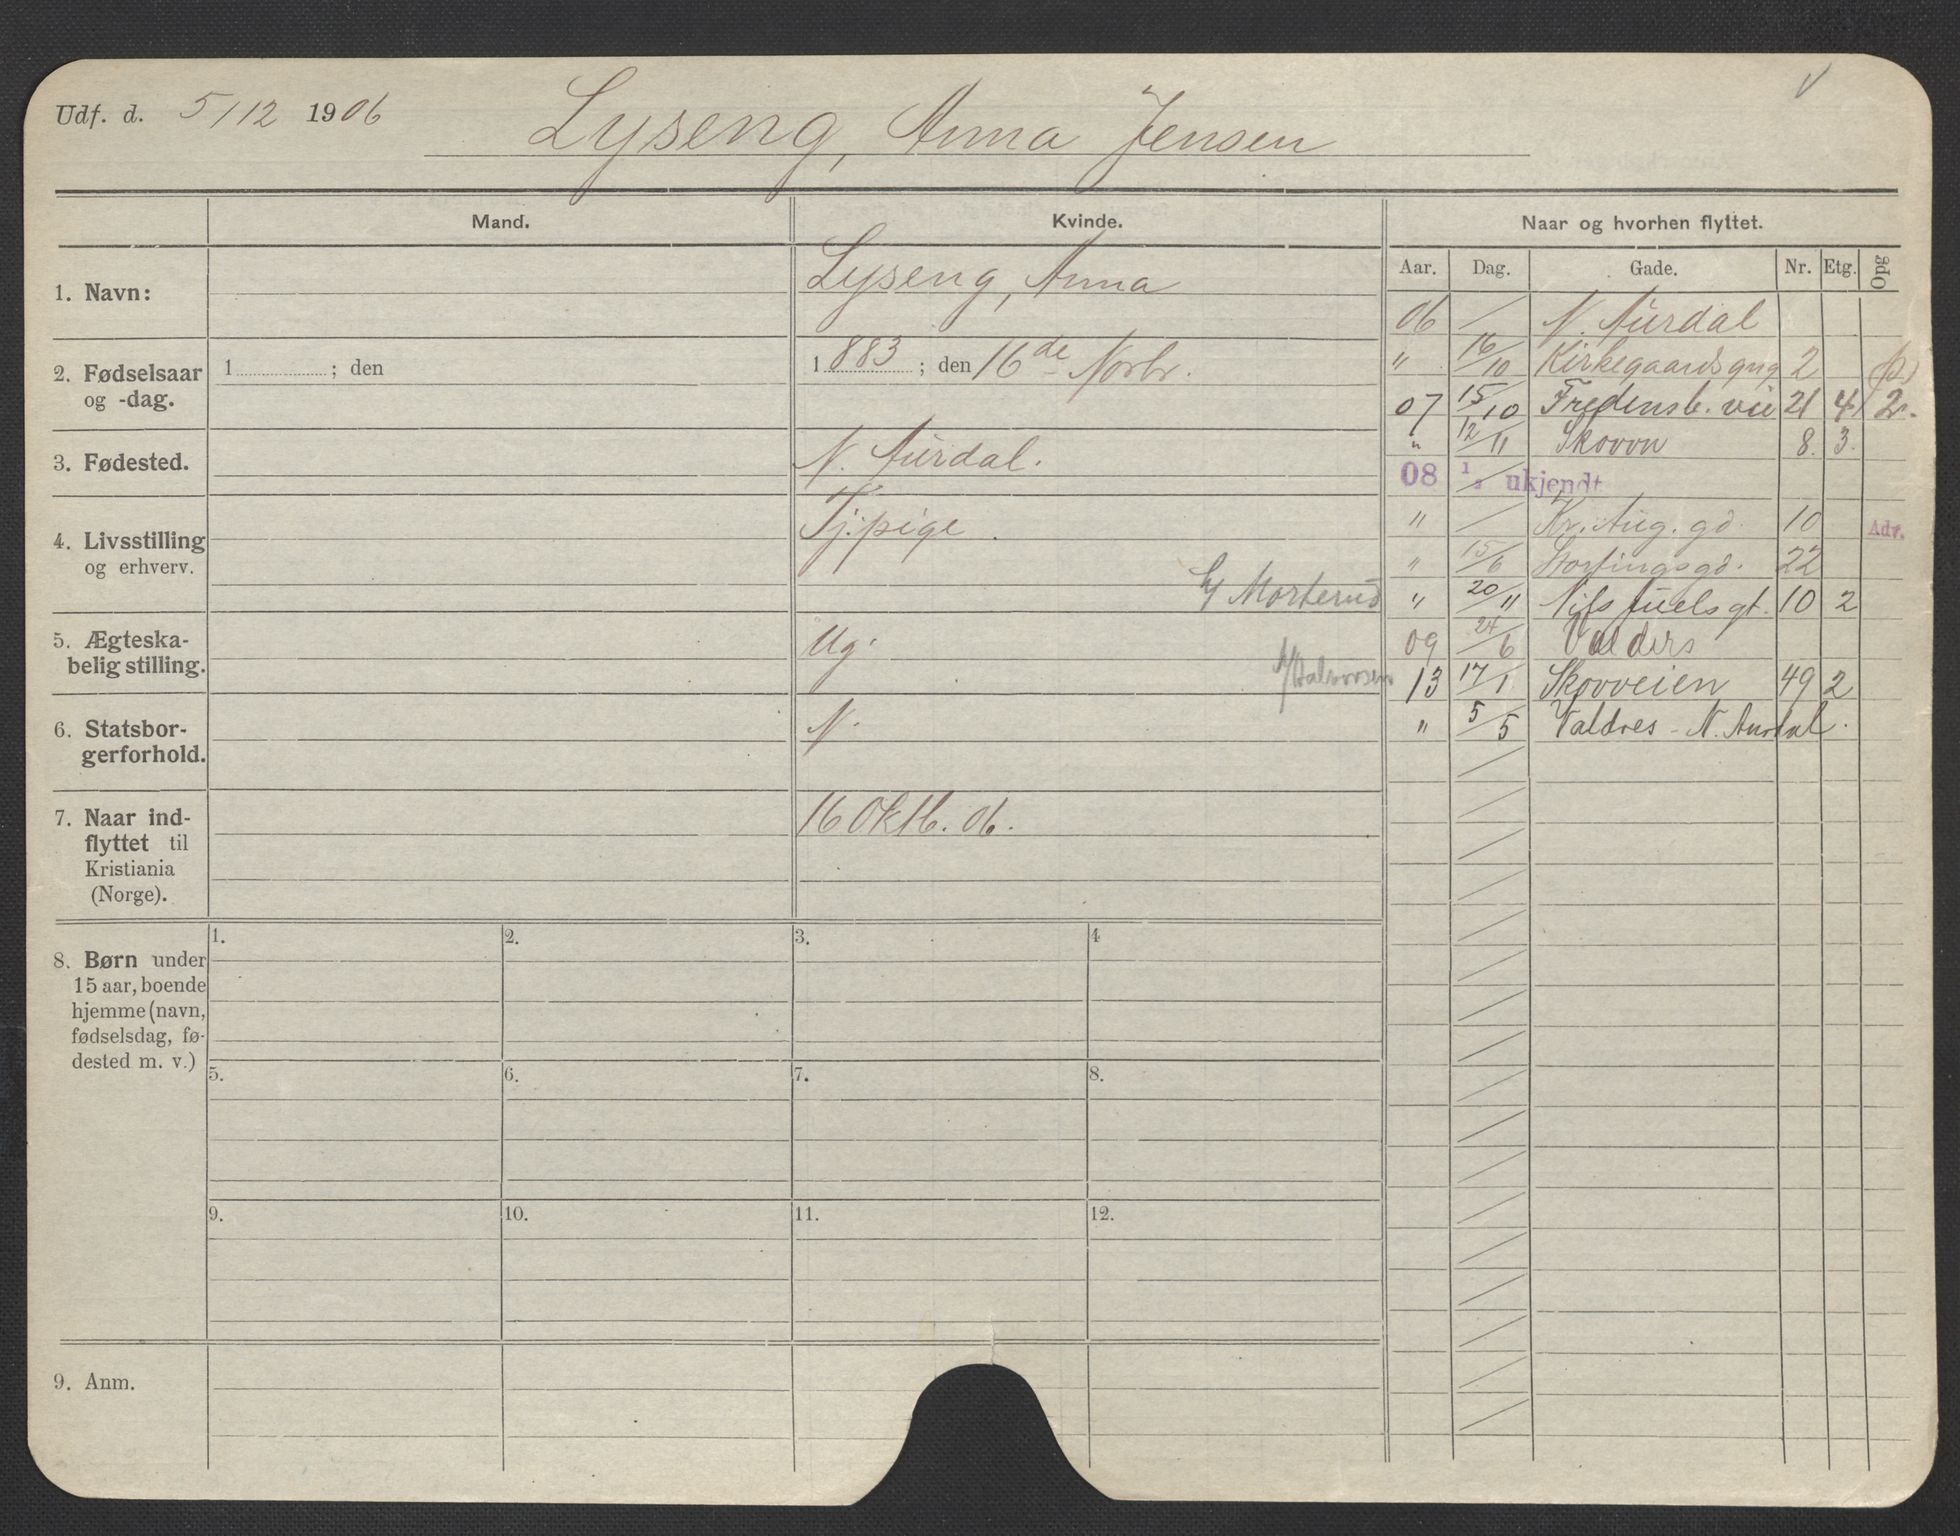 Udf. d. 5/12 1906 Lyseng, Anna Jensen
Mand. Kvinde. Naar og hvorhen flyttet.
Aar. Dag. Gade. Nr. Etg. Opg
1. Navn: Lyseng, Anna
06 N. Aurdal
2. Fødselsaar og -dag. 1 ; den 1883 ; den 16de Novbr.
" 16/10 Kirkegaardsgng 2
07 15/10 Fredensb. vei 21 4 2.
3. Fødested. N. Aurdal.
" 12/11 Skovvn 8. 3.
08 1/ ukjendt
4. Livsstilling og erhverv. Tj.pige.
" Kr. Aug. gd. 10 Adv.
" 15/6 Stortingsgd. 22
h/ Morterud
" 20/11 Nils Juels gt. 10 2
5. Ægteska-
belig stilling. Ug.
09 24/6 Valders
h/Halvorsen
13 17/1 Skovveien 49 2
6. Statsbor-
gerforhold. N.
" 5/5 Valdres - N. Aurdal.
7. Naar ind-
flyttet til
Kristiania
(Norge).
16 Oktb. 06.
8. Børn under
15 aar, boende
hjemme (navn,
fødselsdag, fø-
dested m. v.)
1. 2. 3. 4
5. 6. 7. 8.
9. 10. 11. 12.
9. Anm.